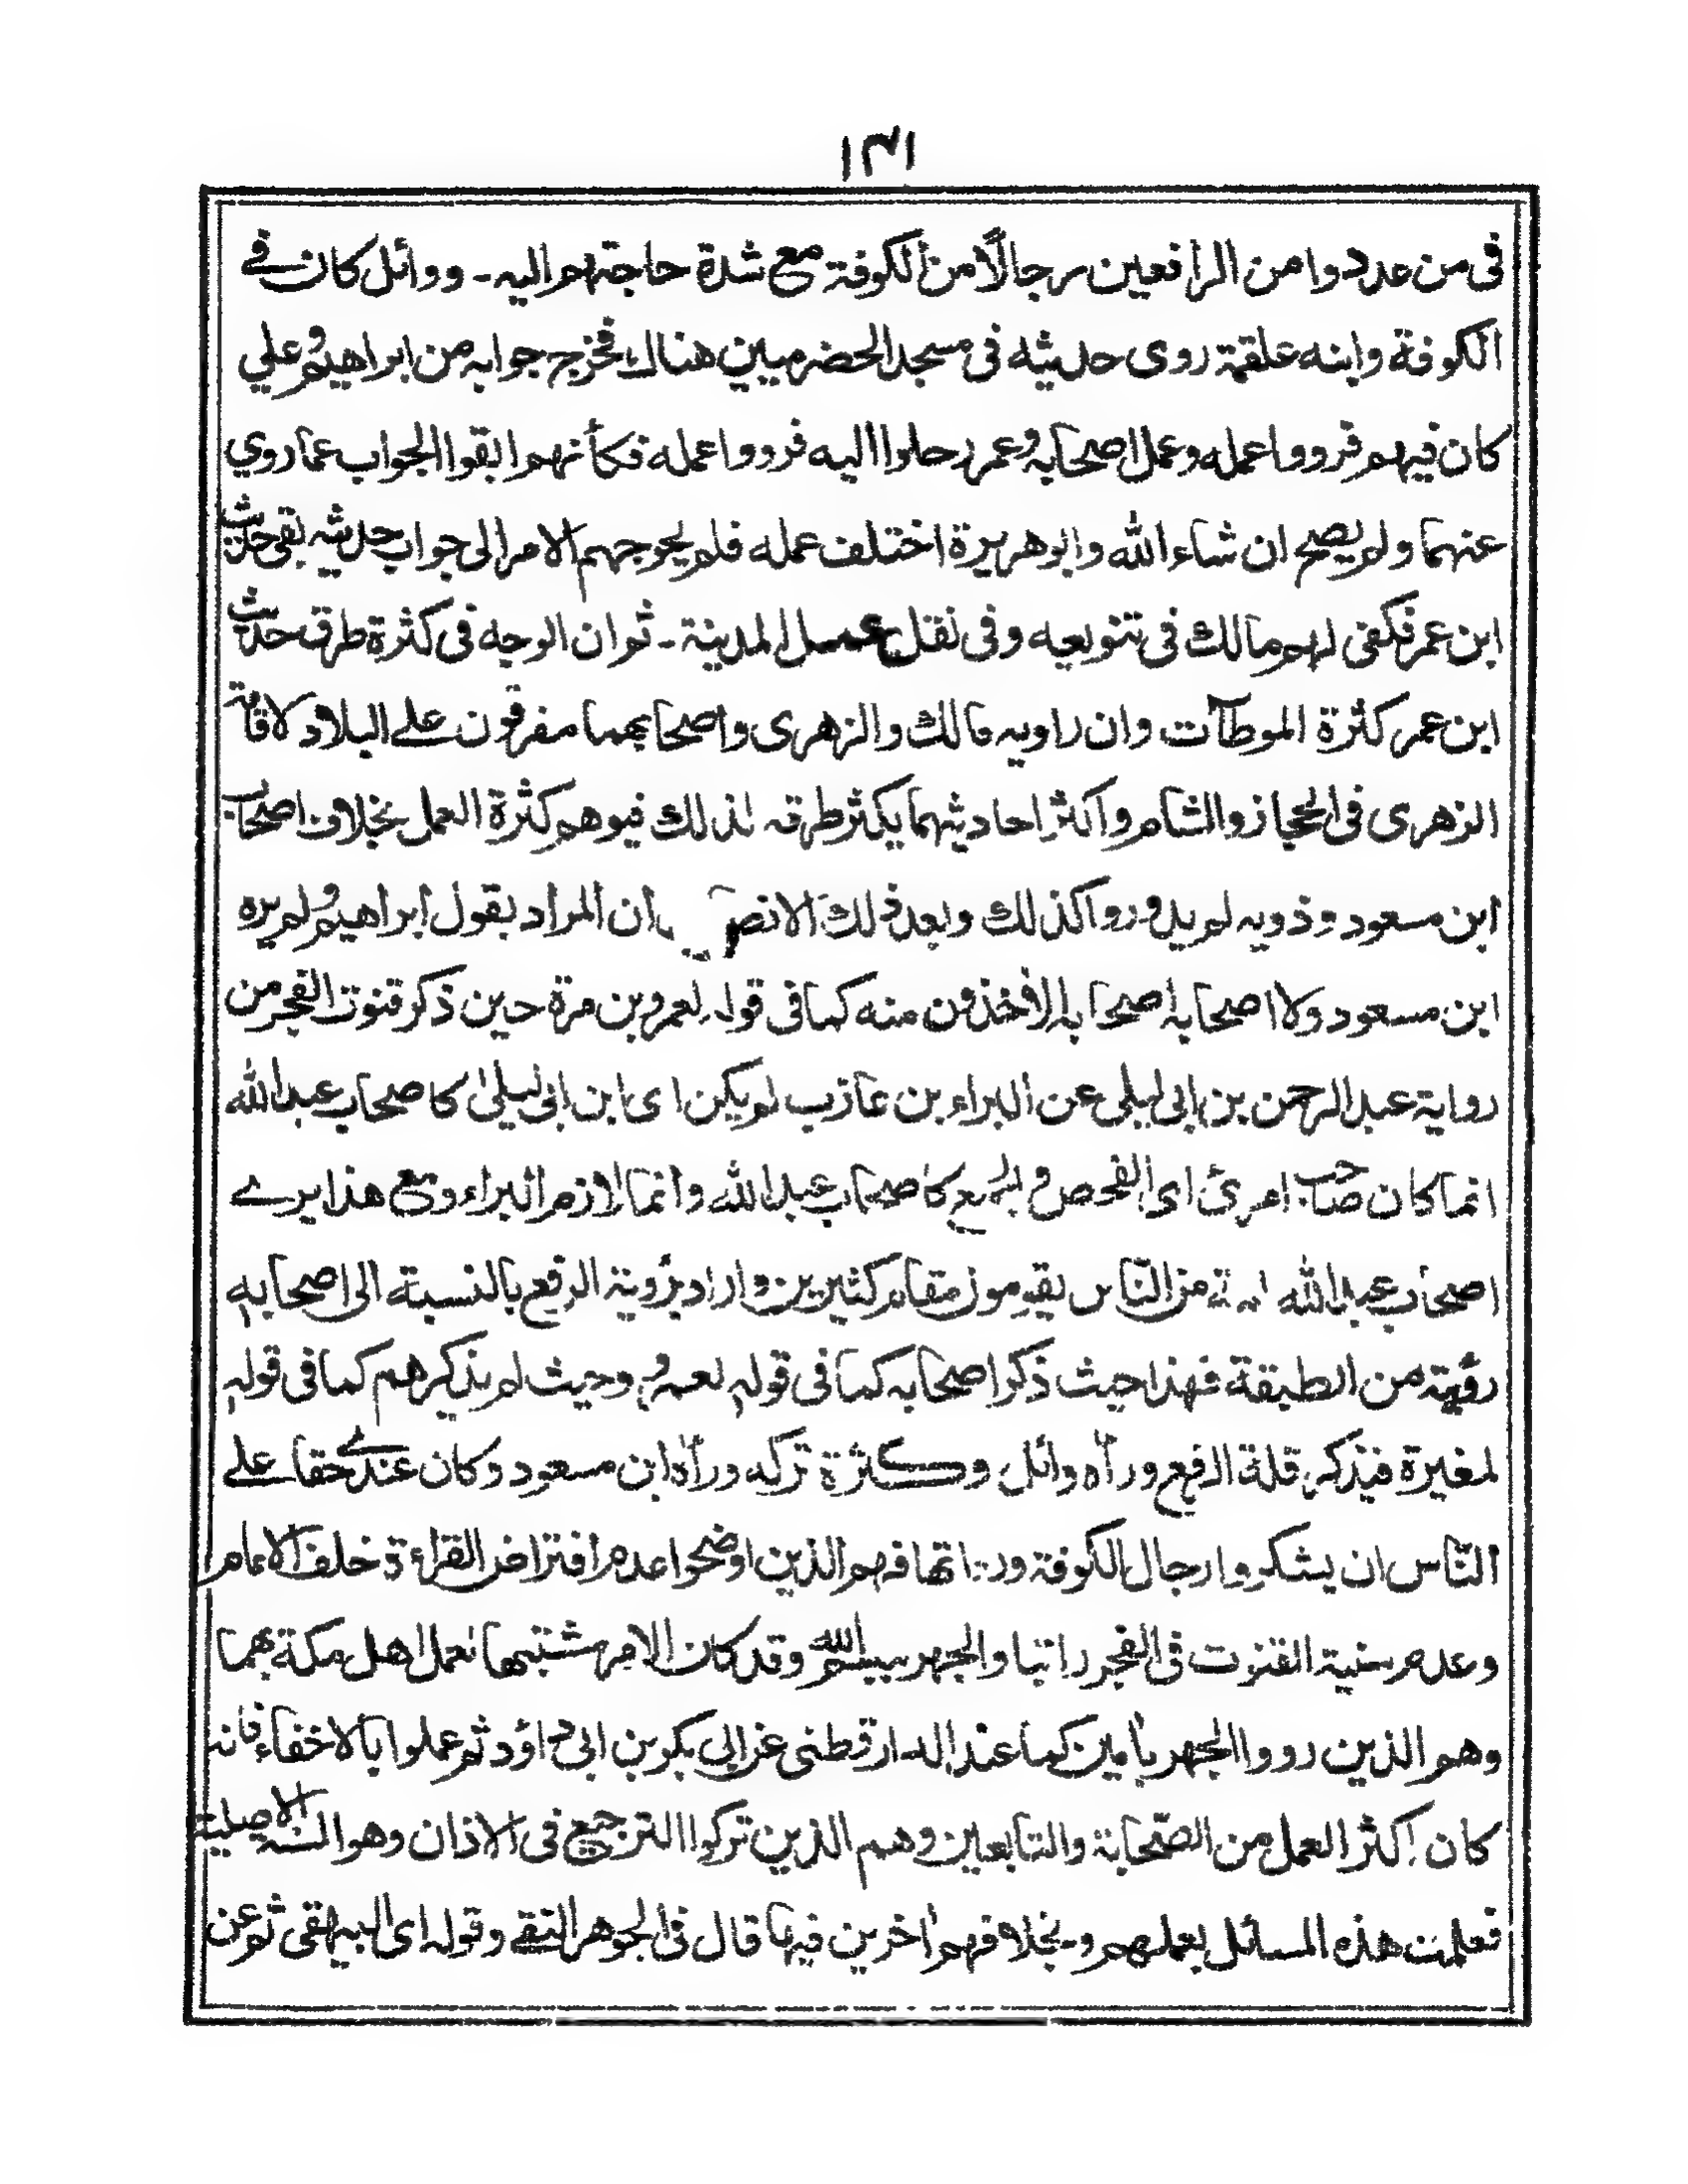 ۱۳۱
فی من عددوا من الرافعین رجالاً من الکوفة مع شدة حاجتهم الیه۔ ووائل کان فے
الکوفة وابنه علقمة روی حدیثه فی مسجد الحضرمیین هناك فخرج جوابه من ابراهیم وعلي
کان فیهم فرووا عمله وعمل اصحابه وعمر رحلوا الیه فرووا عمله فکأنهم ابقوا الجواب عما روي
عنهما ولم یصح ان شاء الله وابو هریرة اختلف عمله فلم یحوجهم الامر الی جواب حدیثه بقی حدیث
ابن عمر فکفی لهم مالك فی تنویعه وفی نقل عمل المدینة۔ ثم ان الوجه فی کثرة طرق حدیث
ابن عمر کثرة الموطآت وان راویه مالك والزهری واصحابهما مفرقون علے البلاد لاقامة
الزهری فی الحجاز والشام واکثر احادیثهما یکثر طرقه لذلك فیوهم کثرة العمل بخلاف اصحاب
ابن مسعود وذویه لم یدوروا کذلك وبعد ذلك الانصر ان المراد بقول ابراهیم ولم یره
ابن مسعود ولا اصحابه اصحابه الاخذون منه کما فی قوله لعمرو بن مرة حین ذکر قنوت الفجر من
روایة عبد الرحمن بن ابی لیلی عن البراء بن عازب لم یکن ای ابن ابی لیلیٰ کاصحاب عبد الله
انما کان صاحب امریٔ ای الفحص والجمع کاصحاب عبد الله وانما لازم البراء ومع هذا یرے
اصحاب عبد الله من الناس یقیمون مقام کثیرین واراد برؤیة الرفع بالنسبة الی اصحابه
رؤیته من الطبقة فهذا حیث ذکر اصحابه کما فی قوله لعمرو وحیث لم یذکرهم کما فی قوله
لمغیرة فیذکر قلة الرفع ورآه وائل وکثرة ترکه ورآه ابن مسعود وکان عندے حقا علے
الناس ان یشکروا رجال الکوفة فهم الذین اوضحوا عدم افتراض القراءة خلف الامام
وعدم سنیة القنوت فی الفجر راتبا والجهر ببسم الله وقد کان الامر مشتبها بعمل اهل مکة بهما
وهم الذین رووا الجهر بآمین کما عند الدارقطنی عن ابی بکر بن ابی داؤد ثم عملوا بالاخفاء فانه
کان اکثر العمل من الصحابة والتابعین وهم الذین ترکوا الترجیع فی الاذان وهو السنة الاصلیة
فعلمت هذه المسائل بعملهم وبخلافهم آخرین فیها قال فی الجوهر النقے وقوله ای البیهقی ثم عن